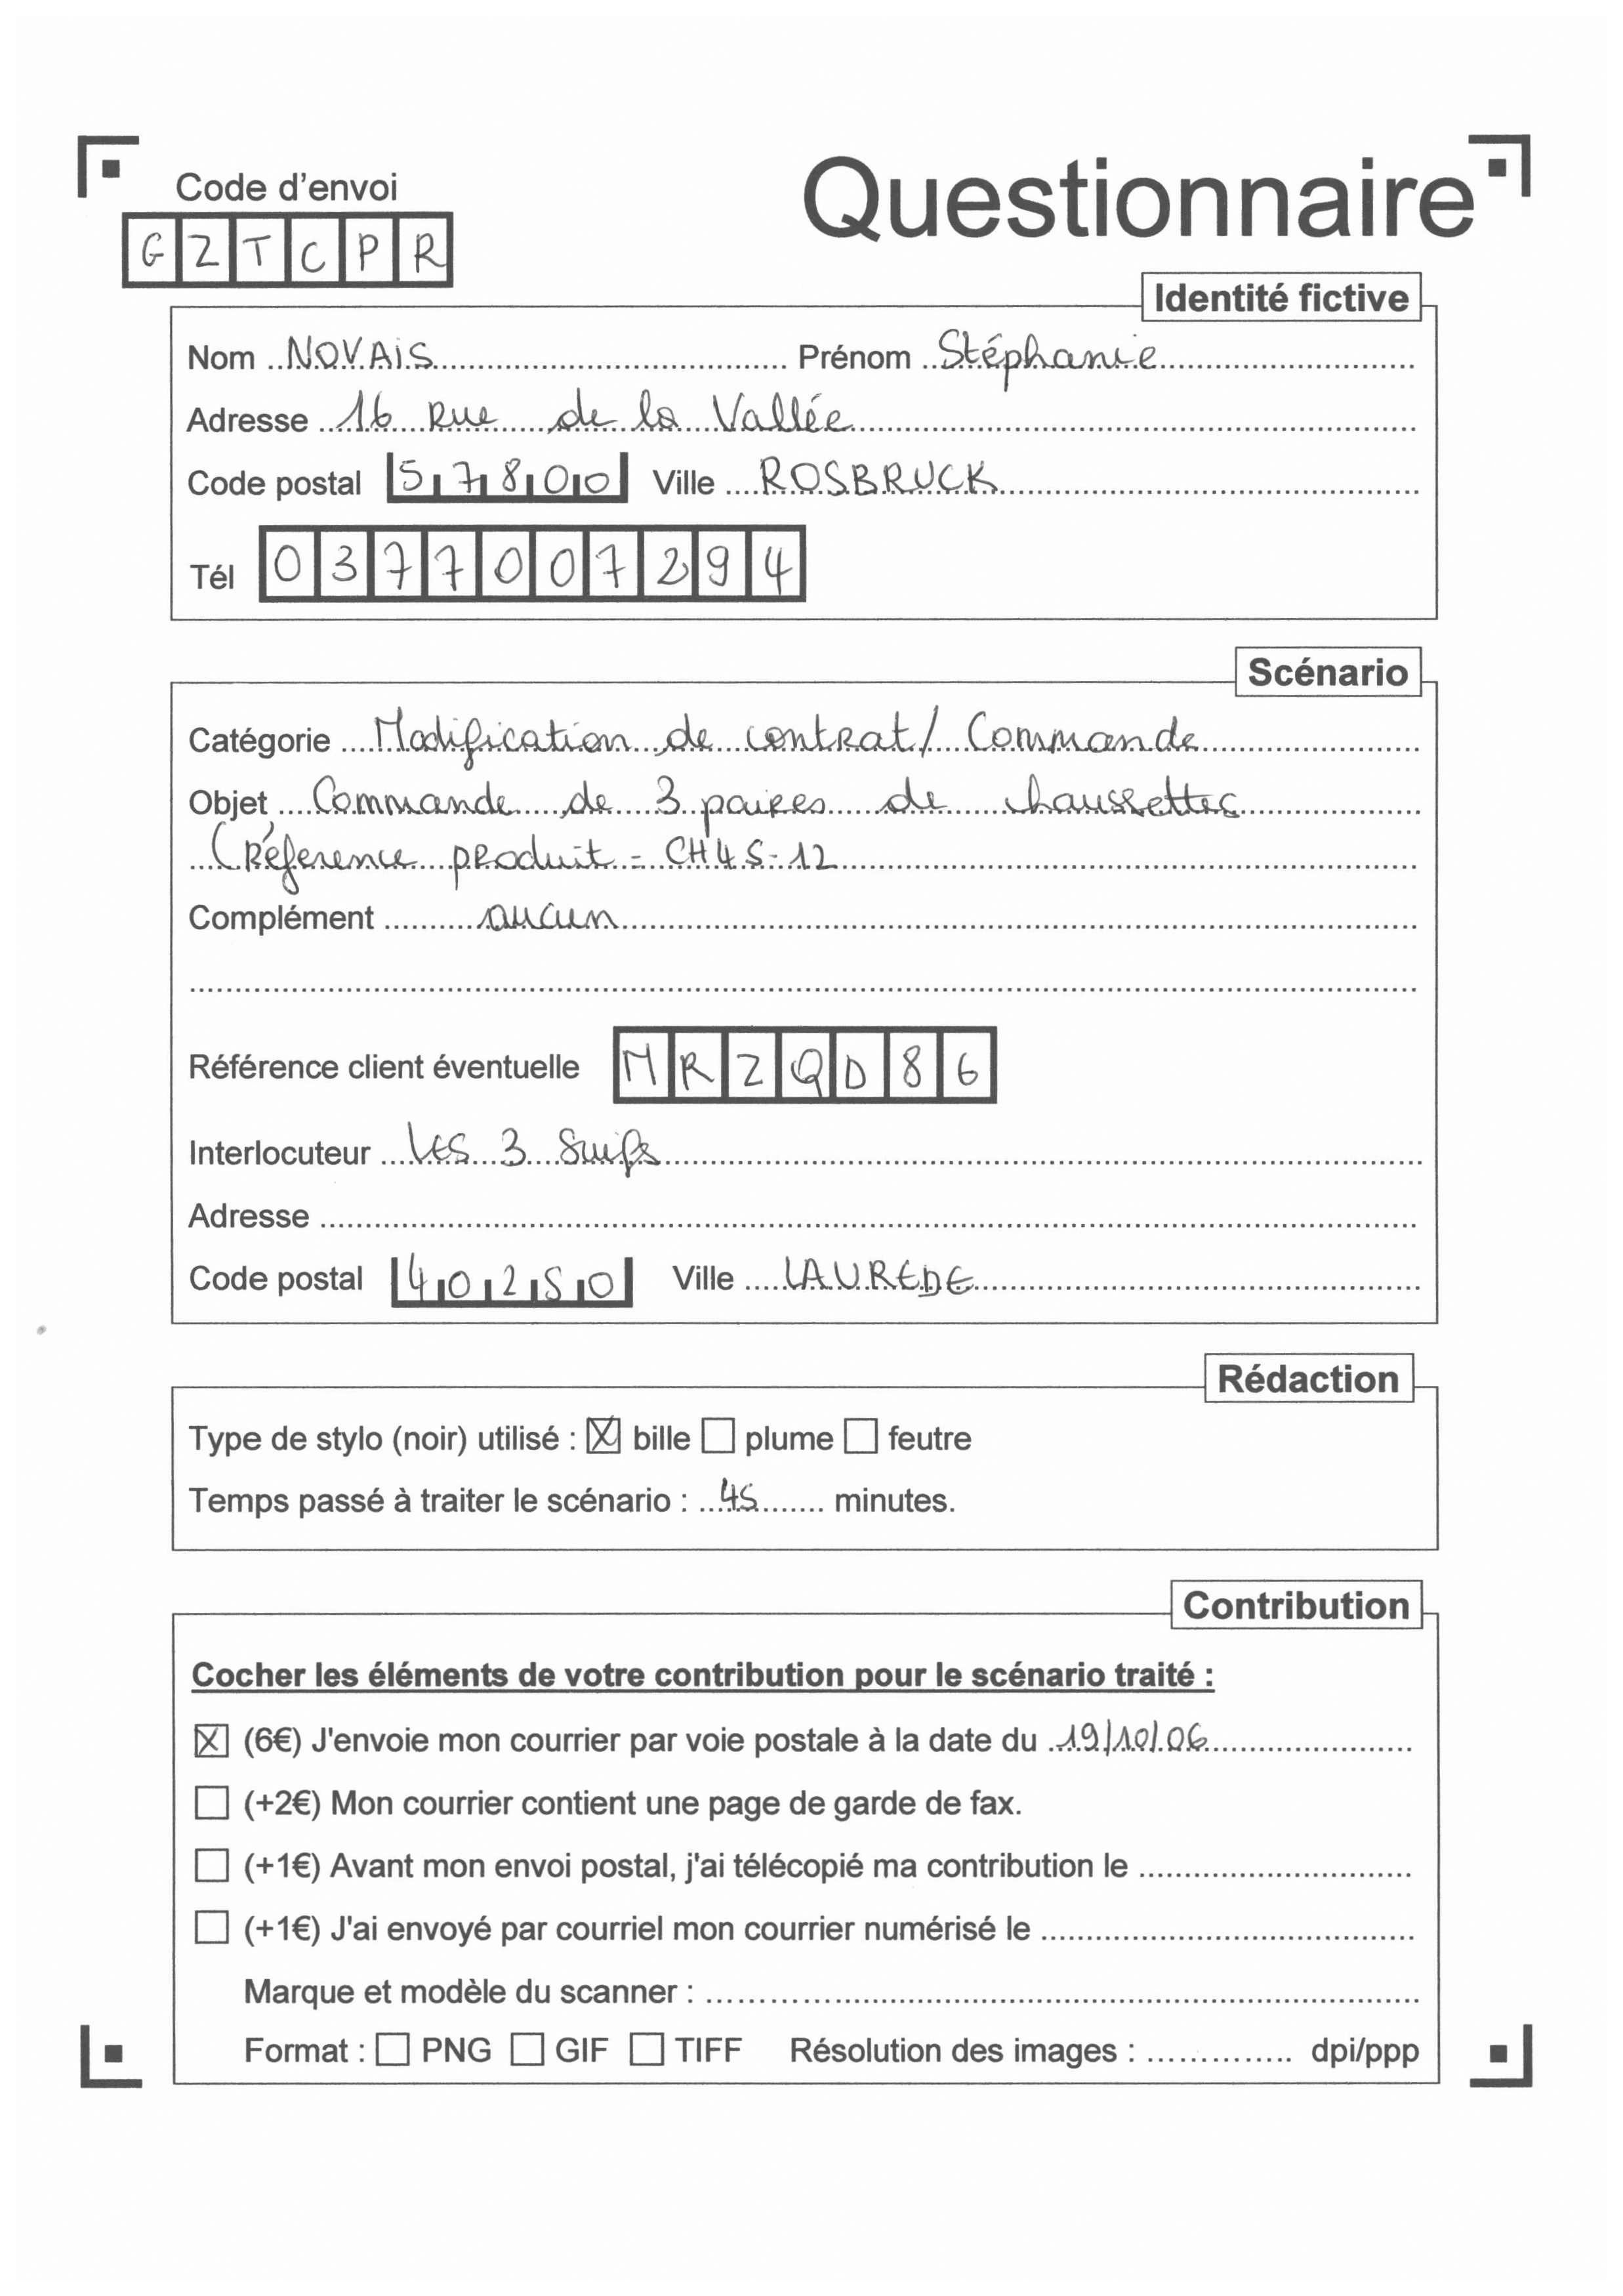 Questionnaire
Code d'envoi
GZTCPR
Identité fictive
Nom NOVAIS Prénom Stéphanie
Adresse 16 Rue de la Vallée
Code postal 57800 Ville ROSBRUCK
Tél 0377007294
Scénario
Catégorie Modification de contrat / Commande
Objet Commande de 3 paires de chaussettes
(Réference produit - CH45-12
Complément aucun
Référence client éventuelle MRZQD86
Interlocuteur LES 3 Suifs
Adresse
Code postal 40250 Ville LAUREDE
Rédaction
Type de stylo (noir) utilisé : ☒ bille ☐ plume ☐ feutre
Temps passé à traiter le scénario : 45 minutes.
Contribution
Cocher les éléments de votre contribution pour le scénario traité :
☒ (6€) J'envoie mon courrier par voie postale à la date du 19/10/06
☐ (+2€) Mon courrier contient une page de garde de fax.
☐ (+1€) Avant mon envoi postal, j'ai télécopié ma contribution le
☐ (+1€) J'ai envoyé par courriel mon courrier numérisé le
Marque et modèle du scanner :
Format : ☐ PNG ☐ GIF ☐ TIFF Résolution des images : dpi/ppp